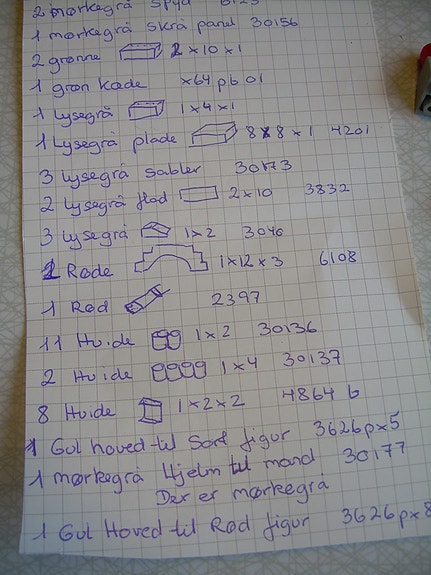 2 mørkegrå spyd 6123
1 mørkegrå skrå panel 30156
2 grønne 2 x 10 x 1
1 grøn kæde x64pb01
1 Lysegrå 1 x 4 x 1
1 Lysegrå plade 8 x 8 x 1 4201
3 Lysegrå sabler 30173
2 Lysegrå flad 2 x 10 3832
3 Lysegrå 1 x 2 3046
2 Røde 1 x 12 x 3 6108
1 Rød 2397
11 Hvide 1 x 2 30136
2 Hvide 1 x 4 30137
8 Hvide 1 x 2 x 2 4864 b
1 Gul hoved til Sort figur 3626px5
1 mørkegrå Hjelm til mand 30177
Der er mørkegrå
1 Gul Hoved til Rød figur 3626px8